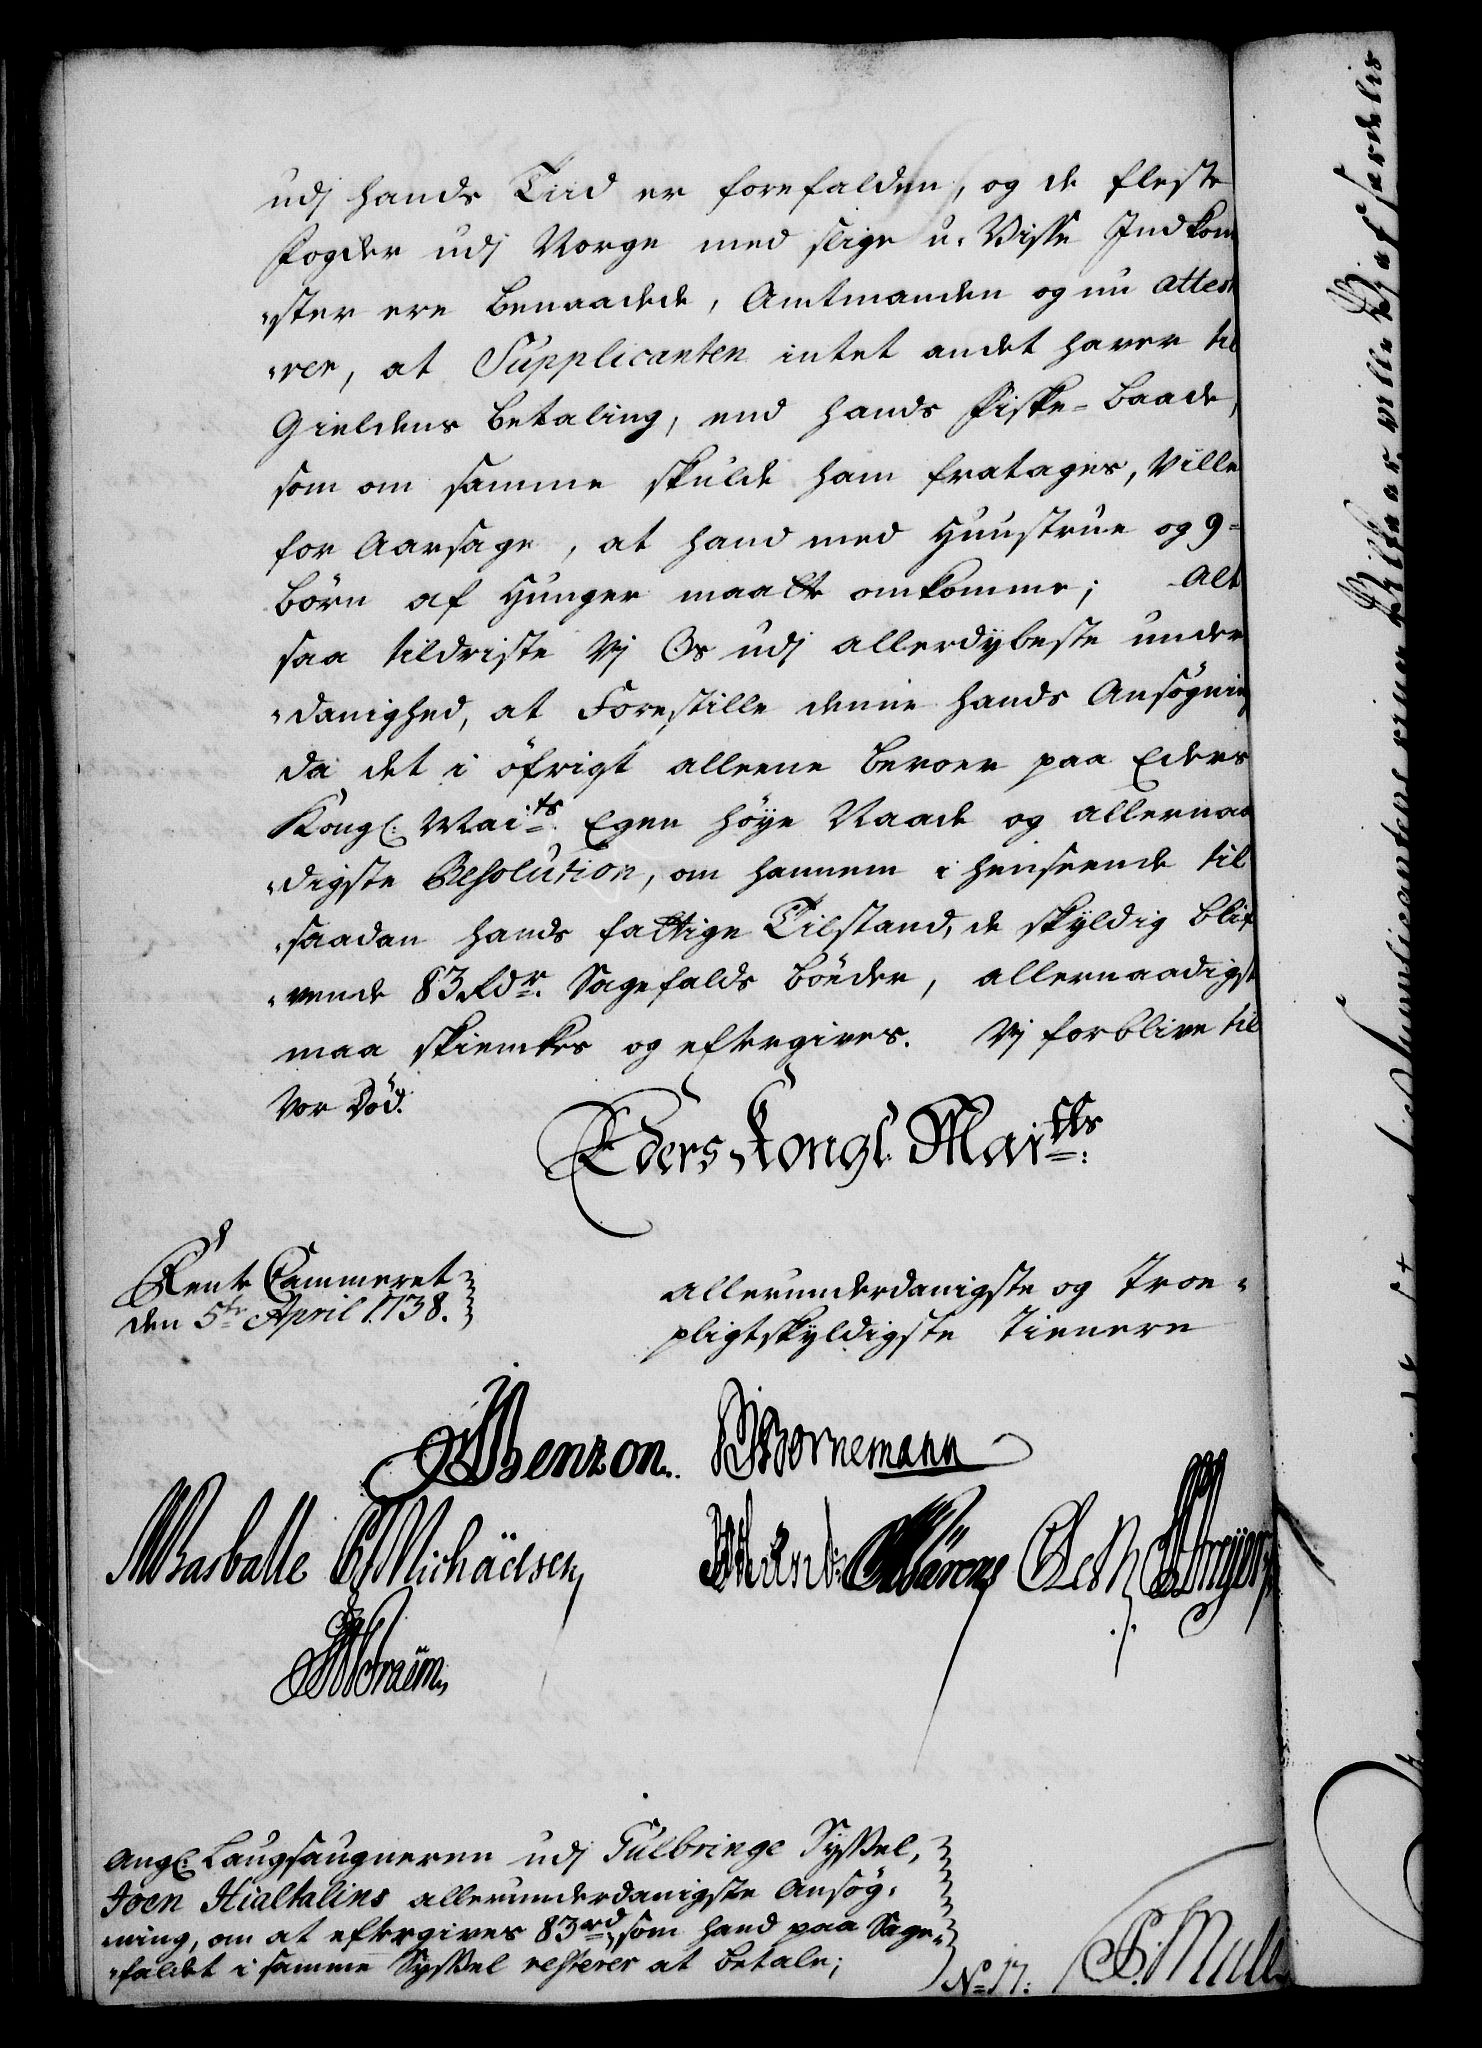 udj hands Tiid er forefalden, og de fleste
fogder udj Norge med slige u-Visse Indkom
"ster ere benaadede, Amtmanden og nu attest
"rer, at Supplicanten intet andet haver til
Gieldens betaling, end hands fiske-baade,
som om samme skulde ham fratages, ville
foraarsage, at hand med Huustrue og 9-
börn af Hunger maatte omkomme; Alt
saa tildriste Vj Os udj allerdybeste under
"danighed, at Forestille denne hands Ansögning
da det i öfrigt alleene beroer paa Eders
Kongl: Mai:ts Egen höye Naade og allernaa
"digste Resolution, om hannem i henseende til
"saadan hands fattige Tilstand, de skyldig blif
"vende 83 Rdr. Sagefalds böeder, allernaadigst
maa skienkes og eftergives. Vj forblive til
vor Död.
Eders Kongl Mai:tts
Rente Cammeret
den 5te April 1738.
allerunderdanigste og Troe-
pligtskyldigste Tienere
Benzon. Bornemann
Basballe Michäelsen
Angl: Laugsaugneren udj Gulbringe Syssel,
Joen Hialtalins allerunderdanigste Ansög-
"ning, om at eftergives 83 rd, som hand paa Sage-
"faldet i samme Syssel resterer at betale;
No 17: